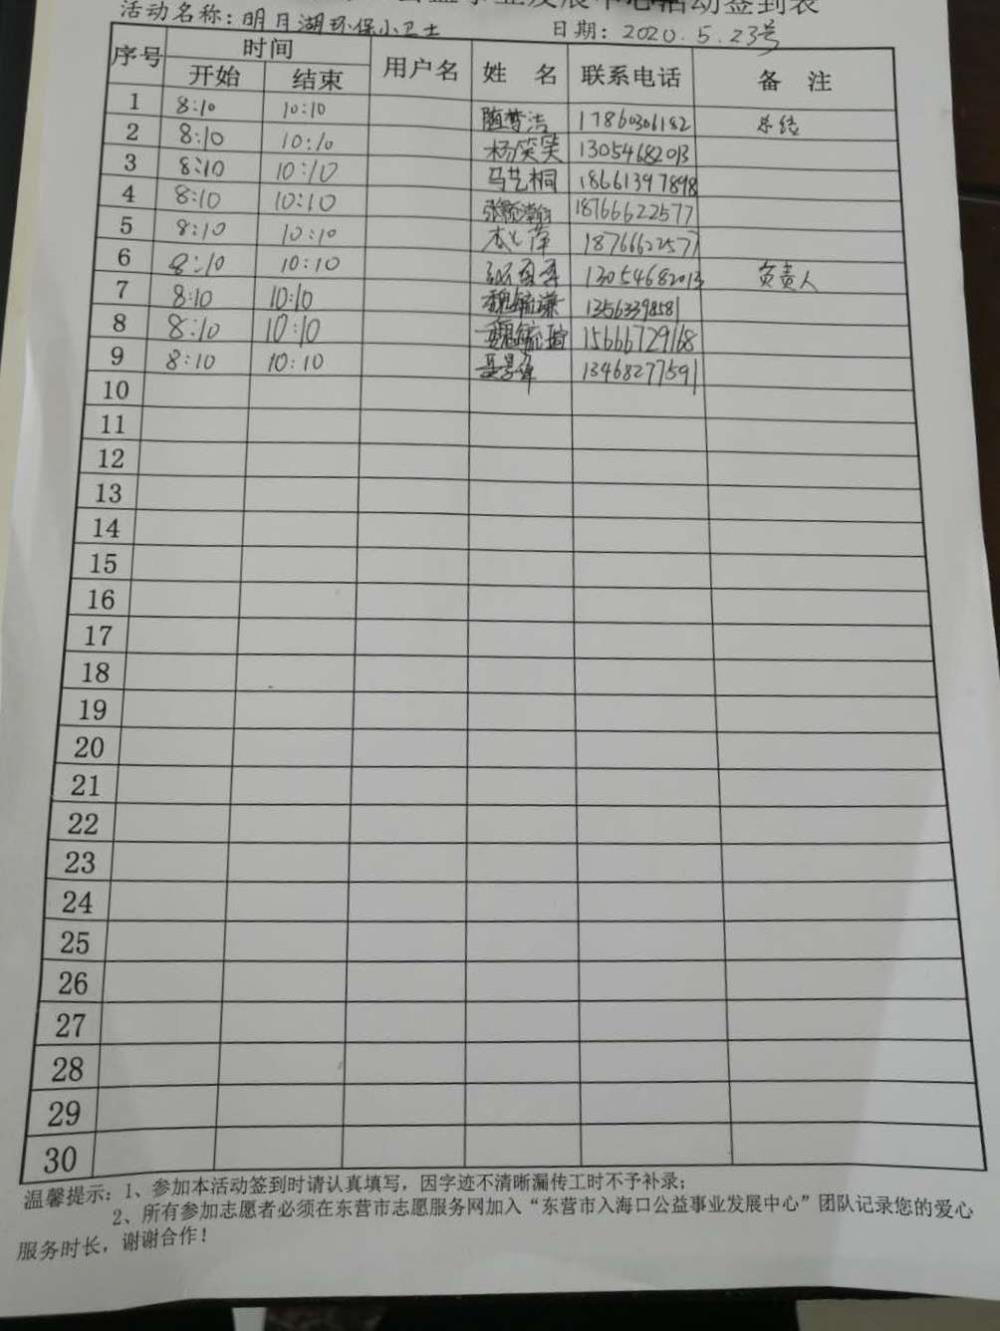 益事业发展中心活动签到表
活动名称：明月湖环保小卫士 日期：2020.5.23号
序号 时间 用户名 姓 名 联系电话 备 注
开始 结束
1 8:10 10:10 随梦洁 17860306182 总结
2 8:10 10:10 杨笑笑 13054682013
3 8:10 10:10 马艺桐 18661397898
4 8:10 10:10 18766622577
5 8:10 10:10 18766622577
6 8:10 10:10 13054682013 负责人
7 8:10 10:10 魏毓谦 13563398581
8 8:10 10:10 15666729168
9 8:10 10:10 13468277591
10
11
12
13
14
15
16
17
18
19
20
21
22
23
24
25
26
27
28
29
30
温馨提示：1、参加本活动签到时请认真填写，因字迹不清晰漏传工时不予补录；
2、所有参加志愿者必须在东营市志愿服务网加入“东营市入海口公益事业发展中心”团队记录您的爱心
服务时长，谢谢合作！